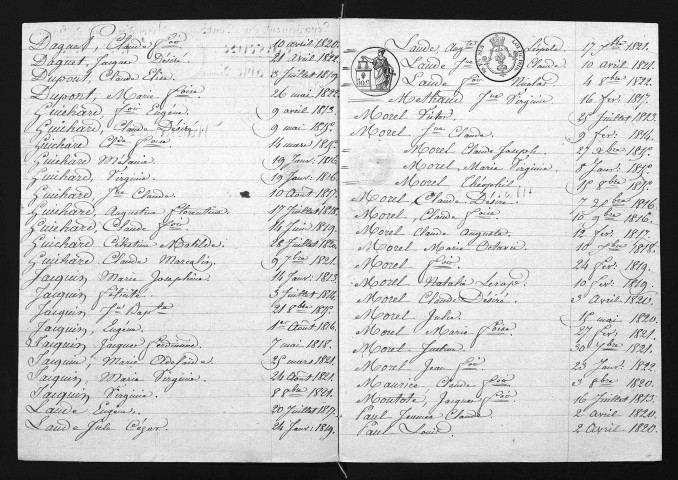 Daguet, Claude Fçois 10 avril 1820.
Daguet, Jacques Désiré. 21 avril 1822.
Dupont, Claude Elie. 3 Juillet 1819.
Dupont, Marie Foise 26 mai 1822.
Guichard, Fçois Eugène. 9 avril 1813.
Guichard, Claude Désiré. 9 mai 1815.
Guichard, Foise. 14 mars 1815.
Guichard, Melania. 19 Janv: 1816.
Guichard, Virginie. 19 Janv: 1816.
Guichard, Claude. 10 Août 1817.
Guichard, Augustine Florentine. 17 Juillet 1818.
Guichard, Claude Fçois. 14 Juin 1819.
Guichard, Célestine Matilde. 28 Juillet 1820.
Guichard, Claude Marcelin. 9 7bre 1821.
Jacquin, Marie Josephine. 14 Janv: 1813.
Jacquin, Félicité. 3 Juillet 1814.
Jacquin, Jn Bapte 21 8bre 1815.
Jacquin, Eugène. 1er Août 1816.
Jacquin, Jacques Ferdinand. 7 mai 1818.
Jacquin, Marie Adelaïde. 25 mars 1821.
Jacquin, Marie Virginie. 24 Août 1821.
Jacquin, Virginie. 8 8bre 1821.
Laude, Eugène. 20 Juillet 1817.
Laude Jule César. 24 Janv: 1819.
30c
Laude, Augte Léopole 17 7bre 1821.
Laude Claude 10 avril 1821.
Laude Nicolas 4 1822.
Methaud Virginie 16 fer. 1817.
Morel Victor. 25 Juillet 1813.
Morel Claude. 9 fer. 1814.
Morel Claude Joseph. 27 1815.
Morel, Marie Virginie. 8 Janv. 1815.
Morel Théophile. 15 8bre 1815.
Morel, Claude Désiré. 1816.
Morel, Claude Foise. 10 9bre 1816.
Morel Claude Auguste. 12 fer. 1817.
Morel Marie Octavie. 10 7bre 1818.
Morel Foise. 24 fer. 1819.
Morel Natale 10 fer. 1819.
Morel Claude Désiré. 3 Avril 1820.
Morel Julie. 15 mai 1820.
Morel Marie Foise. 27 fer. 1821.
Morel Justine. 30 7bre 1821.
Morel Jean Fçois. 23 Janv. 1822.
Maurice Claude Fçois. 3 8bre 1820.
Moutote, Jacques Fçois. 16 Juillet 1813.
Paul Jeanne Claude. 2 avril 1820.
Paul Louis. 2 Avril 1820.